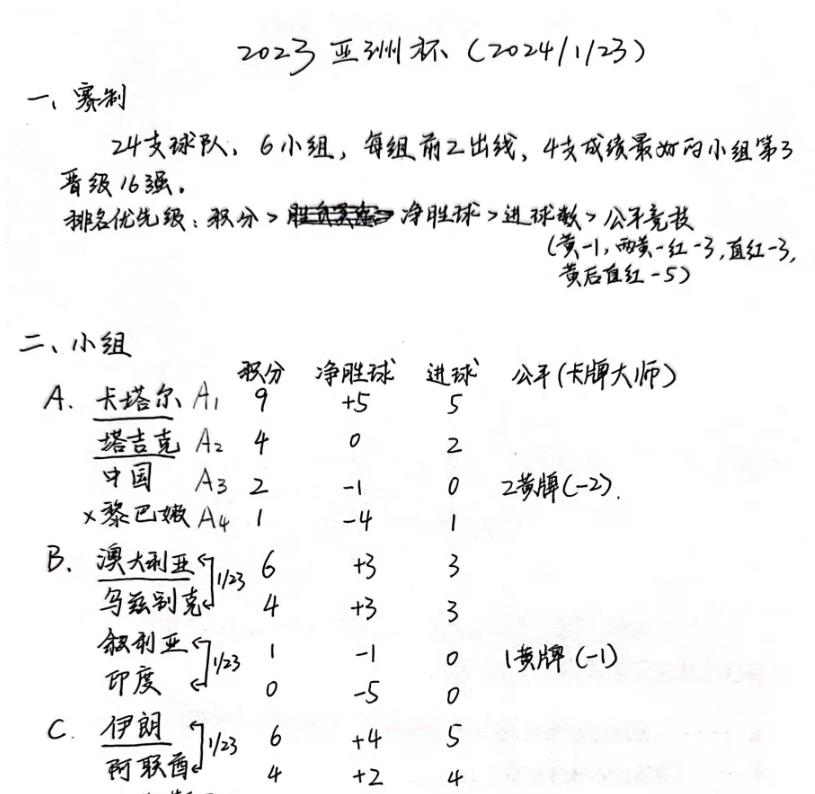 2023 亚洲杯 (2024/1/23)
一、赛制
24支球队、6小组，每组前2出线，4支成绩最好的小组第3
晋级16强。
排名优先级：积分>净胜球>进球数>公平竞技
(黄-1,两黄一红-3,直红-3,
黄后直红-5)
二、小组
积分 净胜球 进球 公平(卡牌大师)
A. 卡塔尔 A1 9 +5 5
塔吉克 A2 4 0 2
中国 A3 2 -1 0 2黄牌(-2).
×黎巴嫩 A4 1 -4 1
B. 澳大利亚 1/23 6 +3 3
乌兹别克 4 +3 3
叙利亚 1/23 1 -1 0 1黄牌(-1)
印度 0 -5 0
C. 伊朗 1/23 6 +4 5
阿联酋 4 +2 4